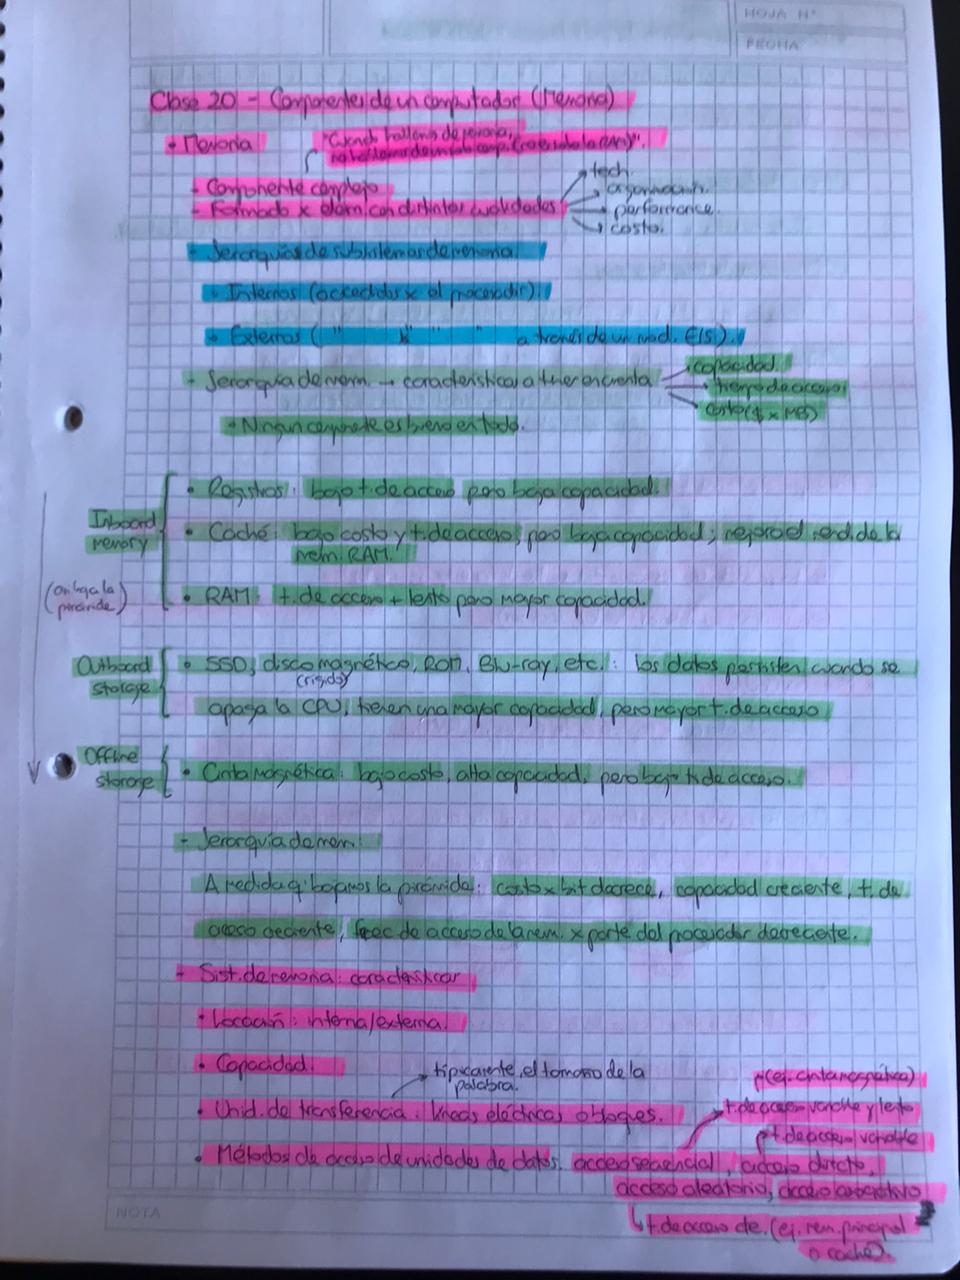 HOJA N°
FECHA
Clase 20 - Componentes de un computador (Memoria)
• Memoria
"Cuando hablemos de memoria,
no hablamos de un solo comp. (no es solo la RAM)".
- Componente complejo
- Formado x elem. con distintas cualidades
tech.
organización.
performance.
costo.
- Jerarquías de subsistemas de memoria
• Internos (accedidos x el procesador).
• Externos ( " " " a través de un mod. E/S).
- Jerarquía de mem. → características a tener en cuenta
capacidad.
tiempo de acceso.
costo ($ x MB)
• Ningún componente es bueno en todo.
Inboard
memory
• Registros: bajo t. de acceso pero baja capacidad.
• Caché: bajo costo y t. de acceso, pero baja capacidad; mejora el rend. de la
mem. RAM.
(abajo la
pirámide)
• RAM: t. de acceso + lento pero mayor capacidad.
Outboard
storage
• SSD, disco magnético, ROM, Blu-ray, etc.: los datos persisten cuando se
(rígido)
apaga la CPU, tienen una mayor capacidad, pero mayor t. de acceso
Offline
storage
• Cinta magnética: bajo costo, alta capacidad, pero bajo t. de acceso.
- Jerarquía de mem:
A medida q' bajamos la pirámide: costo x bit decrece, capacidad creciente, t. de
acceso creciente, frec de acceso de la mem. x parte del procesador decreciente.
- Sist. de memoria: características
• Locación: interna/externa.
• Capacidad.
típicamente, el tamaño de la
palabra.
• Unid. de transferencia: líneas eléctricas o bloques.
(ej. cinta magnética)
t. de acceso variable y lento
t. de acceso variable
• Métodos de acceso de unidades de datos: acceso secuencial, acceso directo,
acceso aleatorio, acceso asociativo
t. de acceso cte. (ej. mem. principal
o caché).
NOTA